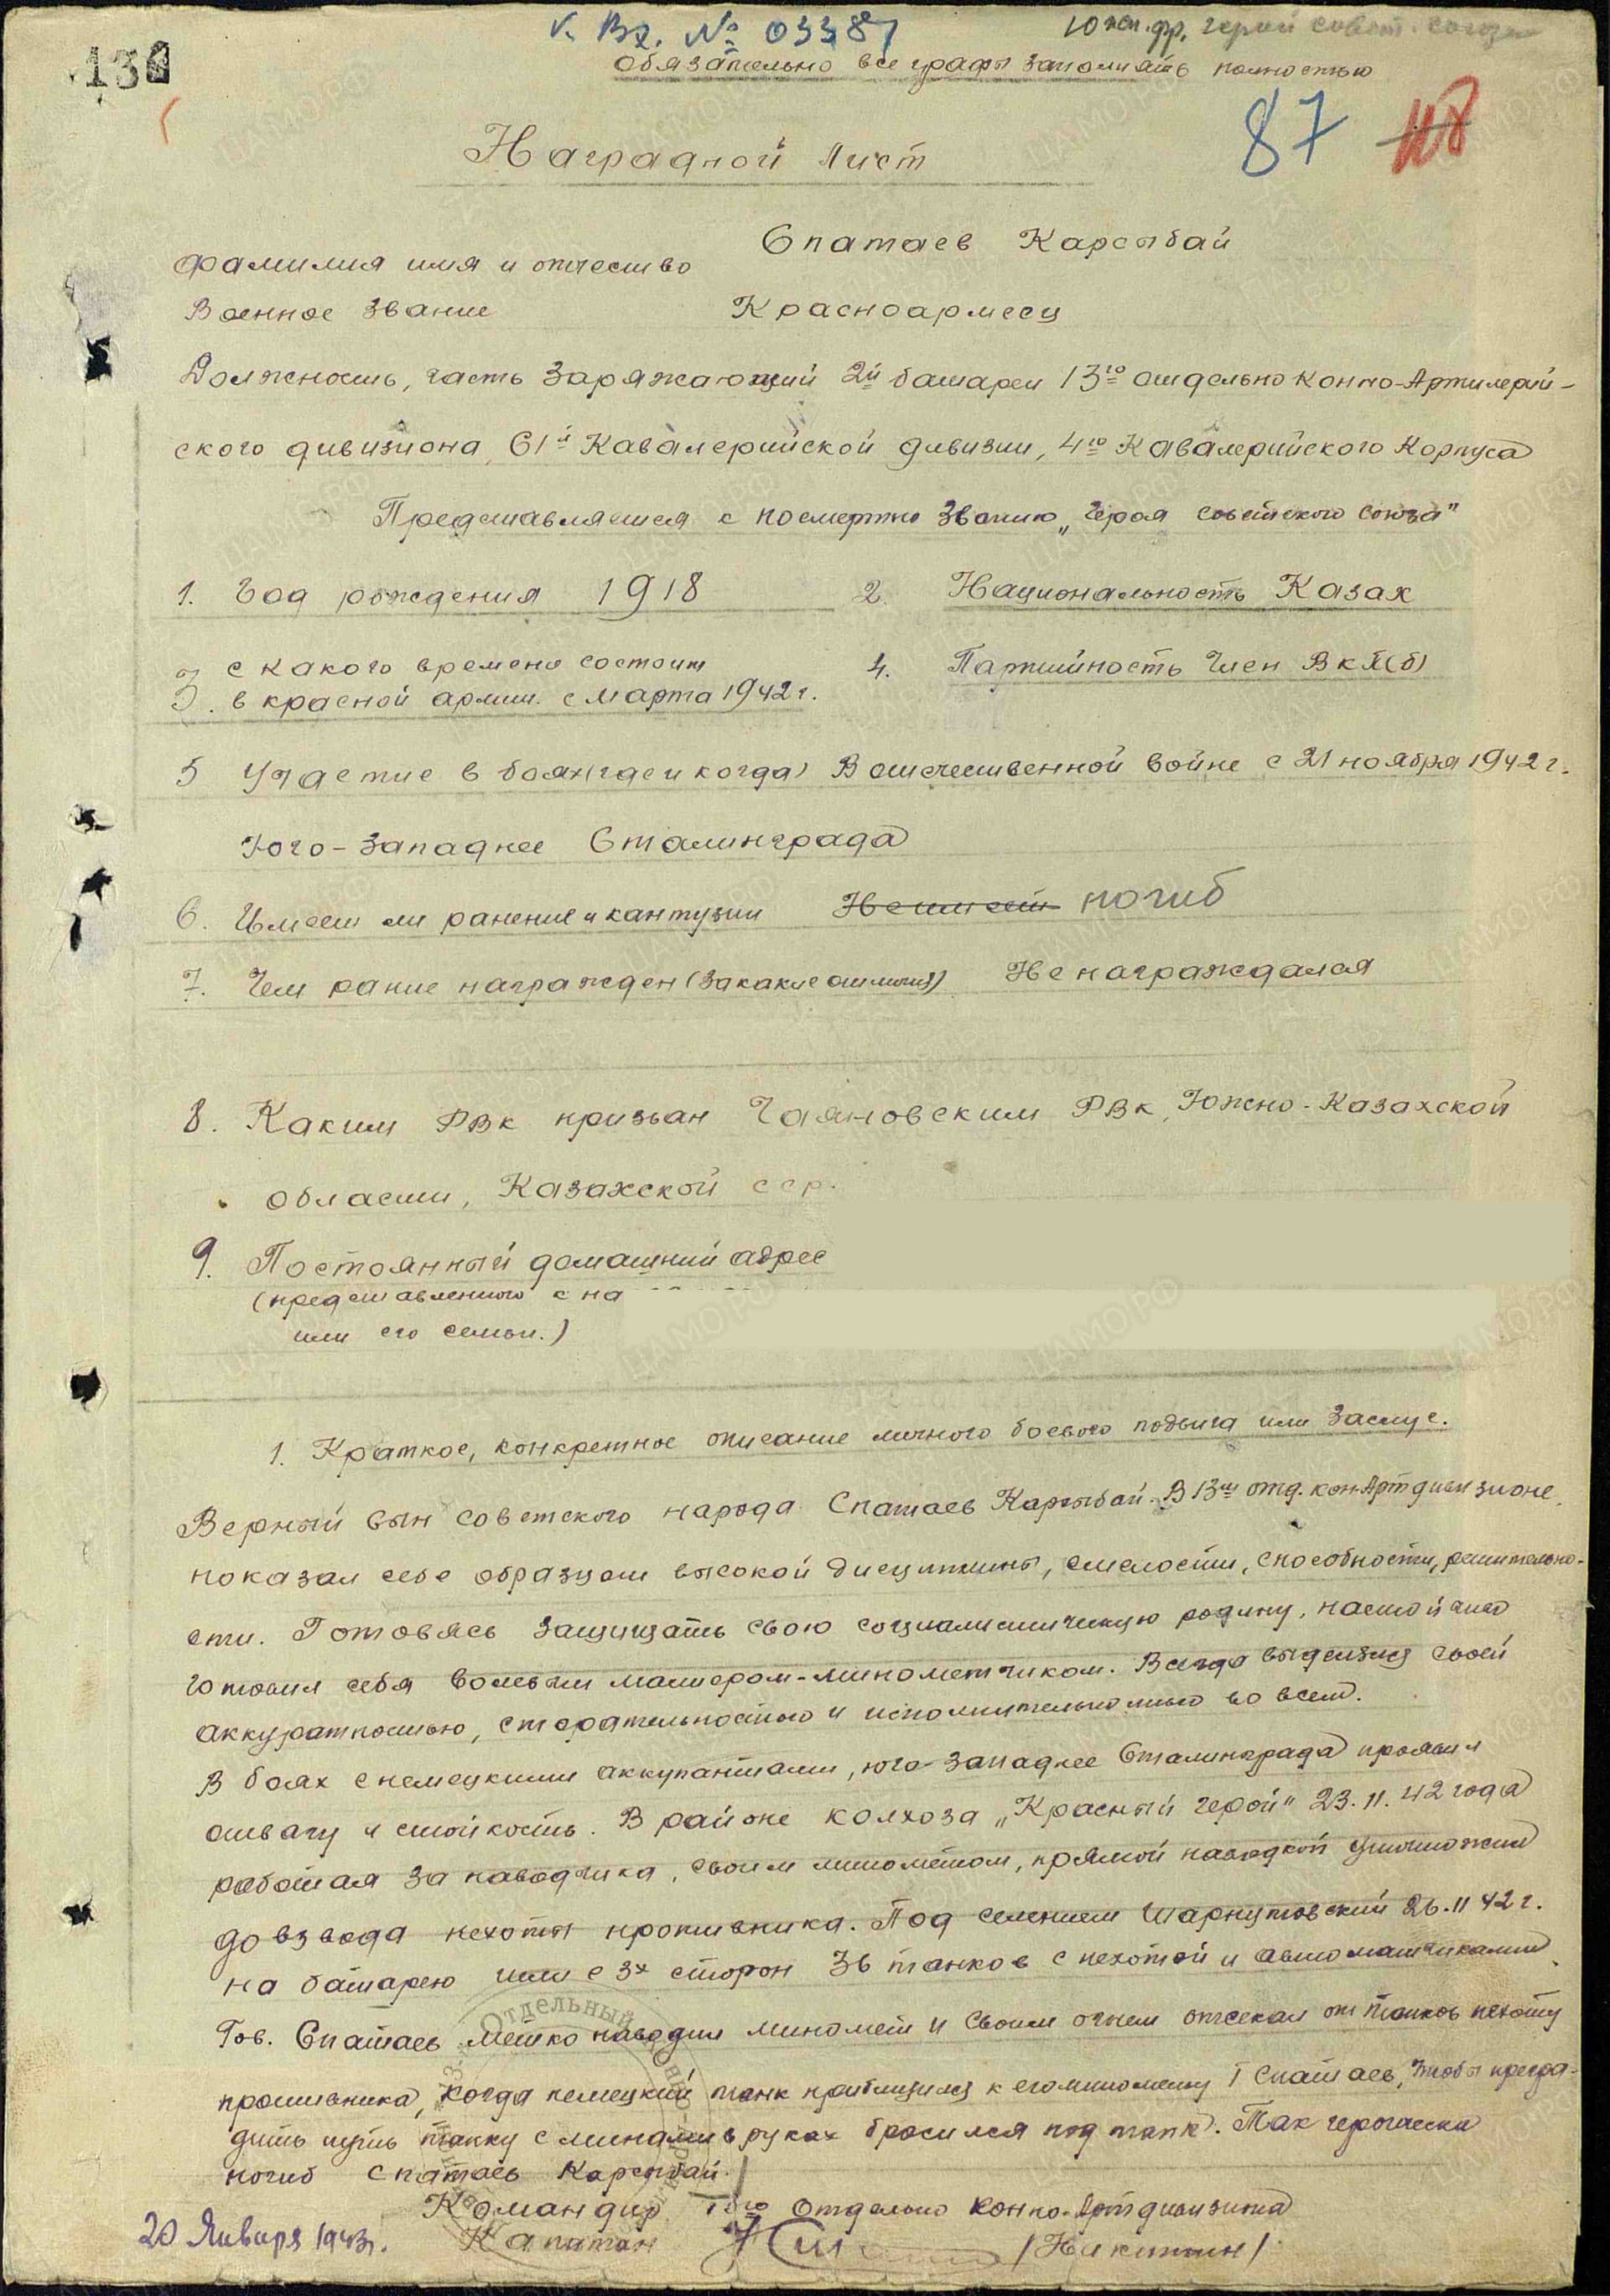 134
V. Вх. № 03387
Юж. фр. герой совет. союза
Обязательно все графы заполнять полностью
87 118
Наградной Лист
Спатаев Карсыбай
Фамилия имя и отчество
Военное звание Красноармеец
Должность, часть Заряжающий 2й батареи 13го отдельно Конно-Артилерий-
ского дивизиона, 61й Кавалерийской дивизии, 4го Кавалерийского Корпуса
Представляется к посмертно званию „Героя советского союза"
1. Год рождения 1918 2. Национальность Казах
3. с какого времени состоит 4. Партийность Член ВКП(б)
в красной армии. с марта 1942 г.
5 Участие в боях (где и когда) В отечественной войне с 21 ноября 1942 г.
Юго-западнее Сталинграда
6. Имеет ли ранение и кантузии Не имеет погиб
7. Чем ранее награжден (за какие отличия) Не награждался
8. Каким РВК призван Чаяновским РВК, Южно-Казахской
области, Казахской сср.
9. Постоянный домашний адрес
(представленного к на
или его семьи.)
1. Краткое, конкретное описание личного боевого подвига или заслуг.
Верный сын советского народа Спатаев Карсыбай. В 13м отд. кон Артдивизионе
показал себя образцом высокой дисциплины, смелости, способности, решительно-
сти. Готовясь защищать свою социалистическую родину, настойчиво
готовил себя волевым мастером-минометчиком. Всегда выделялся своей
аккуратностью, старательностью и исполнительностью во всем.
В боях с немецкими аккупантами, юго-западнее Сталинграда проявил
отвагу и стойкость. В районе колхоза „Красный герой" 23.11.42 года
работая за наводчика, своим минометом, прямой наводкой уничтожил
до взвода пехоты противника. Под селением Шарнутовский 26.11 42 г.
на батарею шли с 3х сторон 36 танков с пехотой и автоматчиками.
Тов. Спатаев метко наводил миномет и своим огнем отсекал от танков пехоту
противника, когда немецкий танк приблизился к его миномету т Спатаев, чтобы прегра-
дить путь танку с минами в руках бросился под танк. Так героически
погиб Спатаев Карсыбай.
Командир 13го отдельно конно-Артдивизиона
20 Января 1943 г. Капитан /Никитин/